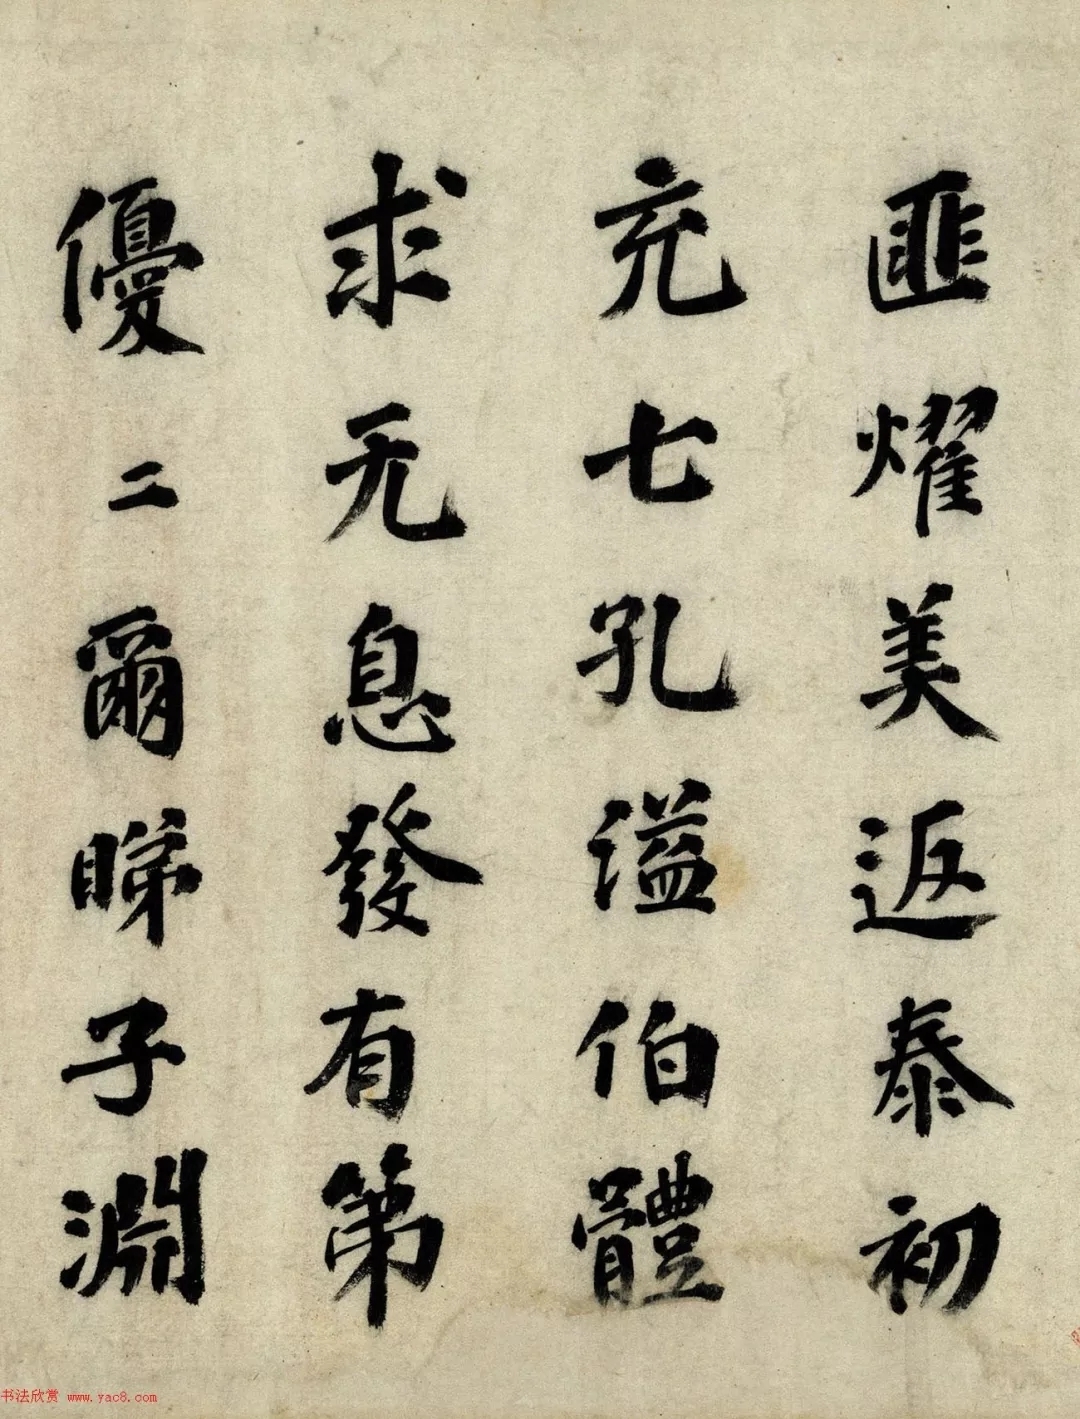 匪耀美返泰初
充七孔謚伯體
求无息發有第
優二爾睇子淵
书法欣赏 www.yac8.com